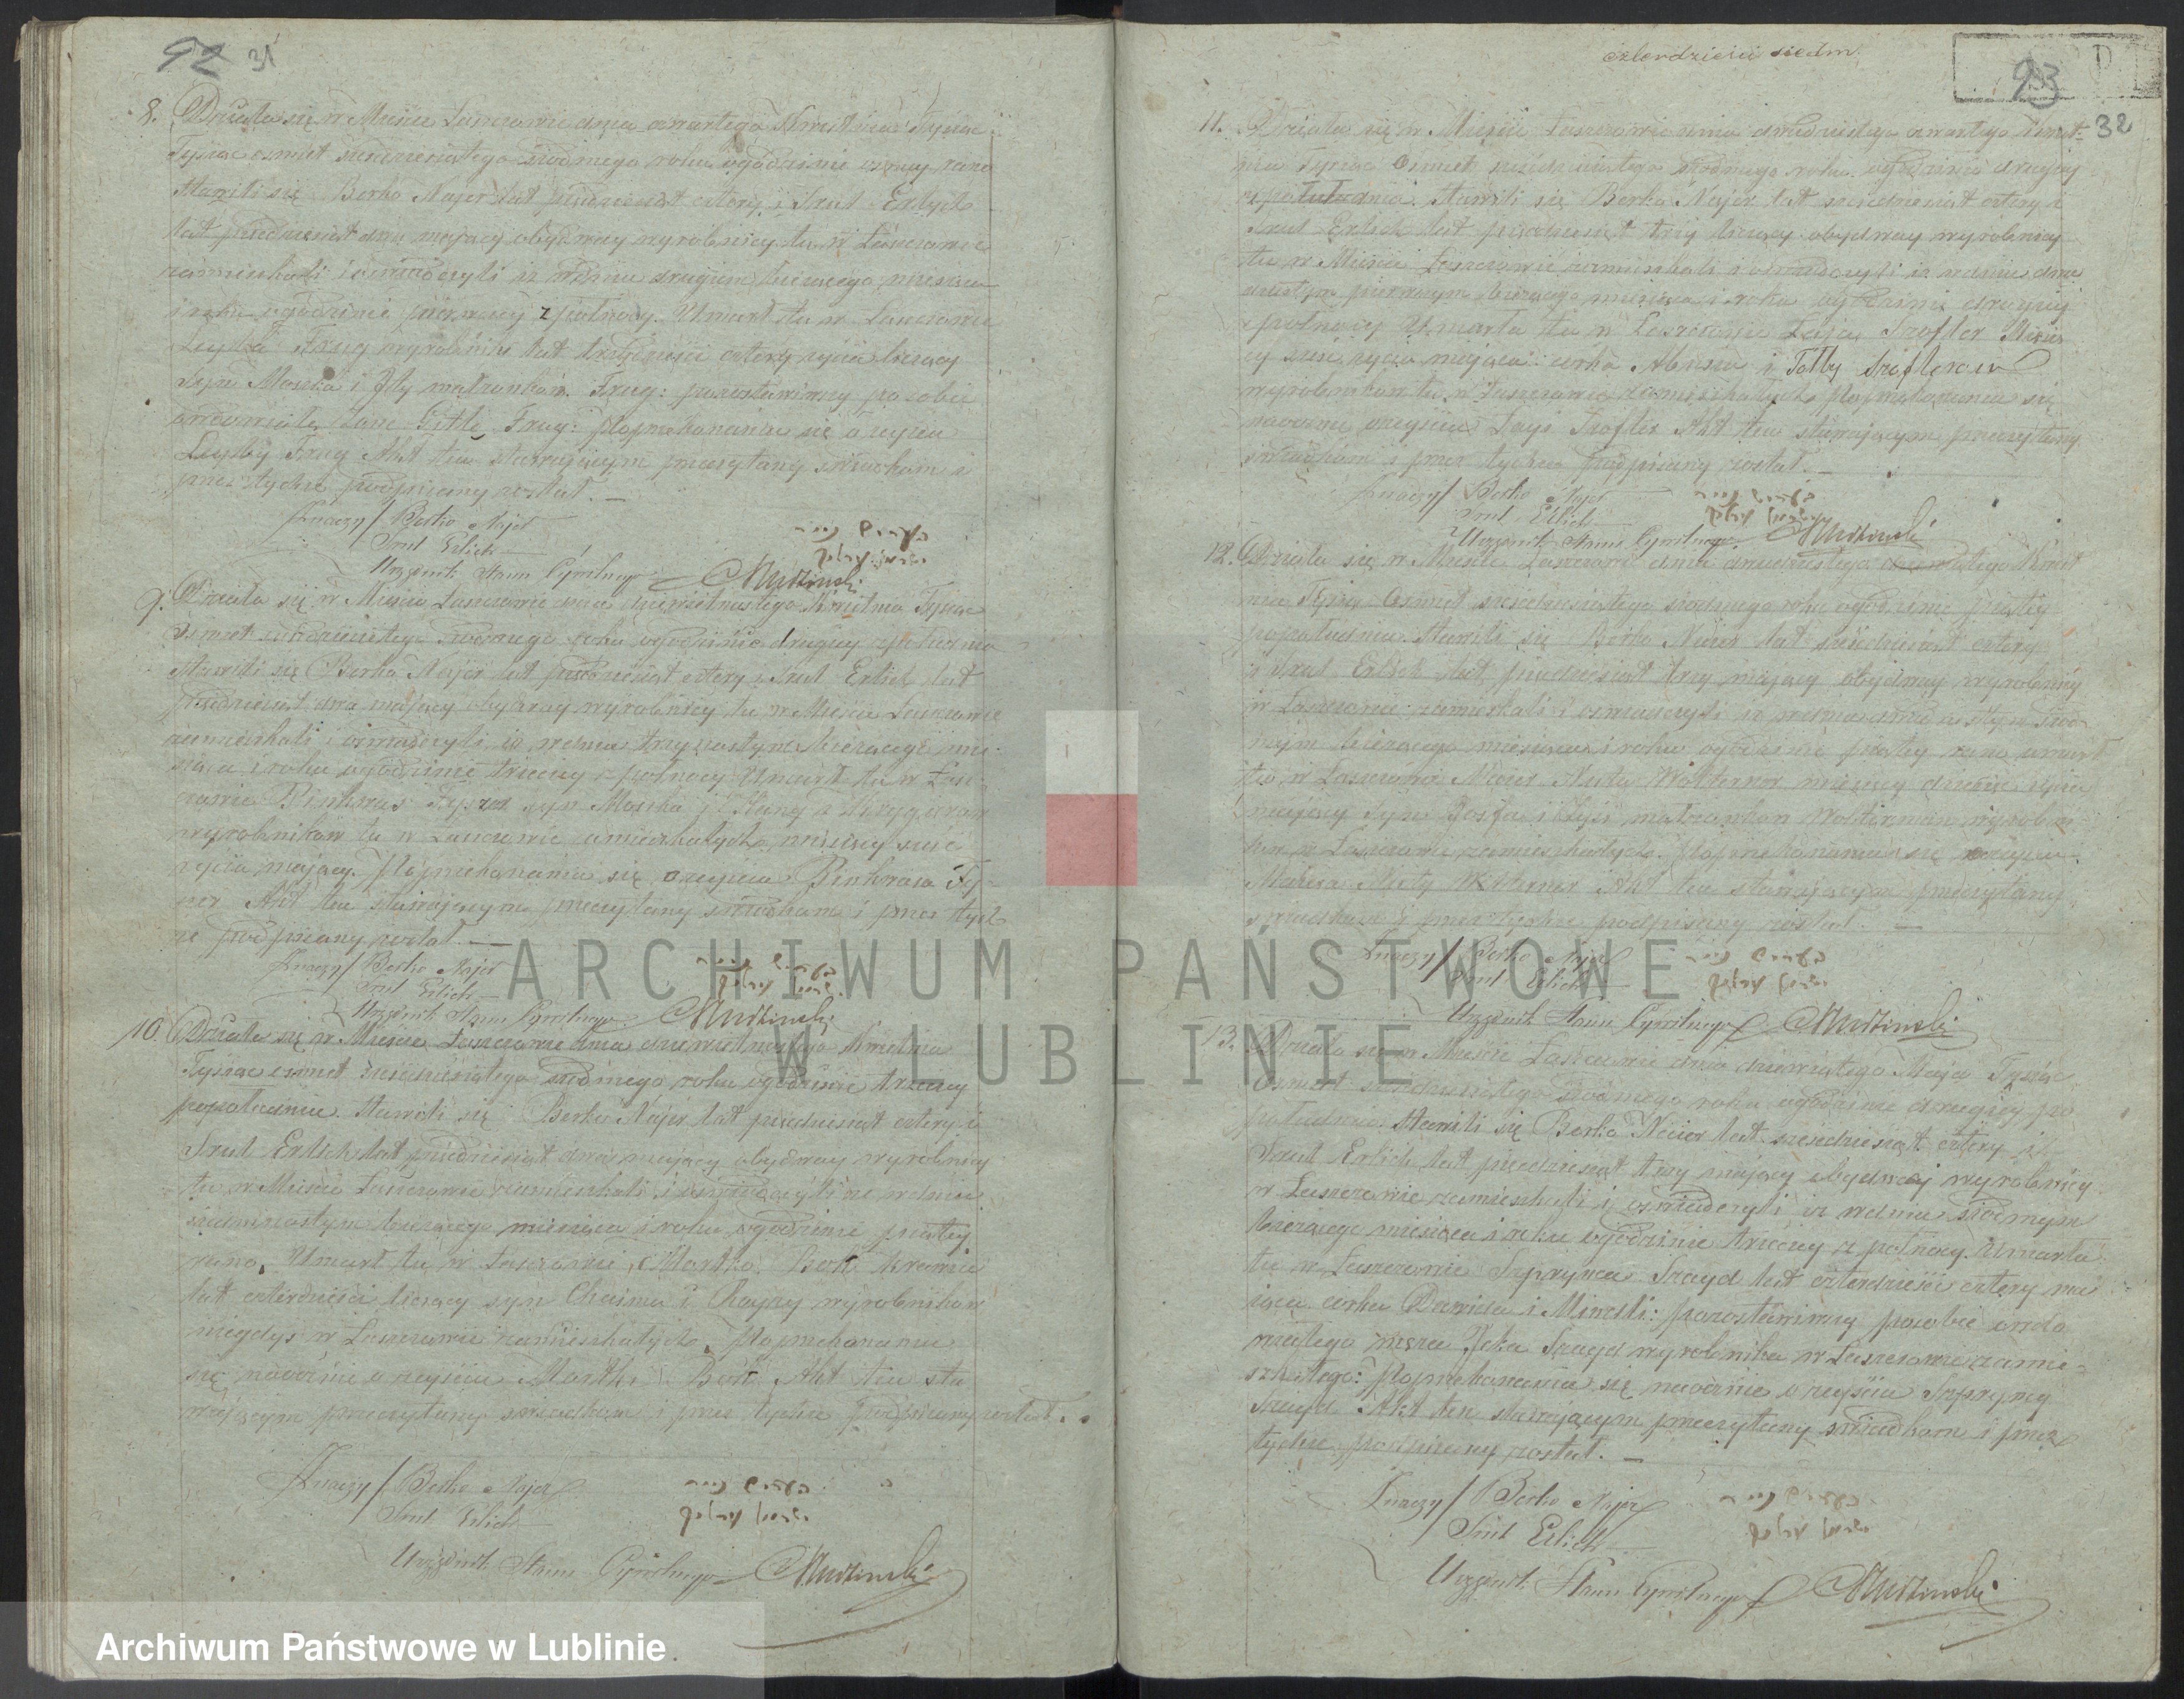 92 31
8. Działo się w Mieście Łaszczowie dnia czwartego Kwietnia Tysiąc
Tysiąc osmset sześdziesiątego siodmego roku o godzinie osmey rano
Stawili się Berko Najer lat piędziesiąt cztery i Srul Erlich
lat piędziesiąt dwa maiący obydway wyrobnicy tu w Łaszczowie
zamieszkali i oswiadczyli iż w dniu drugim bieżącego miesiąca
i roku o godzinie pierwszey z pułnocy. Umarł tu w Łaszczowie
Leyba Frug wyrobnik lat trzydzieści cztery życia liczący
Syn Moszka i Ity małżonków Frug: pozostawiwszy po sobie
owdowiałę żonę Gitlę Frug: Po przekonaniu się o zeyściu
Leyby Frug Akt ten stawaiącym przeczytany swiadkom i
przez tychże podpisany został. —
Znaczy/ Berko Najer
Srul Erlich
בעריש נייר
ישראל ערליך
Urzędnik Stanu Cywilnego
9. Działo się w Mieście Łaszczowie dnia dziewiętnastego Kwietnia Tysiąc
Osmset sześdziesiątego siodmego roku o godzinie drugiey z południa
Stawili się Berko Najer lat piędziesiąt cztery i Srul Erlich lat
piędziesiąt dwa maiący obydway wyrobnicy tu w Mieście Łaszczowie
zamieszkali i oswiadczyli iż w dniu trzynastym bieżącego mie-
siąca i roku o godzinie trzeciey z połnocy Umarł tu w Łasz-
czowie Pinkwas syn Moszka i
wyrobników tu w Łaszczowie zamieszkałych, miesięcy sześć
życia maiący. Po przekonaniu się o zeyściu Pinkwasa
Akt ten stawaiącym przeczytany swiadkom i przez tych
że podpisany został. —
Znaczy/ Berko Najer
Srul Erlich
בעריש נייר
ישראל ערליך
Urzędnik Stanu Cywilnego
10. Działo się w Mieście Łaszczowie dnia dziewiętnastego Kwietnia
Tysiąc osmset sześdziesiątego siodmego roku o godzinie trzeciey
popołudniu. Stawili się Berko Najer lat piędziesiąt cztery i
Srul Erlich lat piędziesiąt dwa maiący obydway wyrobnicy
tu w Mieście Łaszczowie zamieszkali i oswiadczyli że w dniu
siedmnastym bieżącego miesiąca i roku o godzinie piątey
rano. Umarł tu w Łaszczowie Mortko
lat czterdzieści liczący syn Chaima i Chayzy wyrobników
niegdyś w Łaszczowie zamieszkałych. Po przekonaniu
się naocznie o zeyściu Mortka Akt ten sta
waiącym przeczytany swiadkom i przez tychże podpisany został.
Znaczy/ Berko Najer
Srul Erlich
בעריש נייר
ישראל ערליך
Urzędnik Stanu Cywilnego
czterdzieści siedm
93
32
11. Działo się w Mieście Łaszczowie dnia dwudziestego czwartego Kwiet-
nia Tysiąc Osmset sześdziesiątego siodmego roku o godzinie drugiey
z południa. Stawili się Berko Najer lat sześdziesiąt cztery i
Srul Erlich lat piędziesiąt trzy liczący obydway wyrobnicy
tu w Mieście Łaszczowie zamieszkali i oswiadczyli iż w dniu dwu
dziestym pierwszym bieżącego miesiąca i roku o godzinie drugiey
z połnocy Umarła tu w Łaszczowie Łaja Szofler Miesię
cy sześć życia maiąca: corka Abusia i Tołby Szoflerow
wyrobników tu w Łaszczowie zamieszkałych Po przekonaniu się
naocznie o zeyściu Łai Szofler Akt ten stawaiącym przeczytany
swiadkom i przez tychże podpisany został. —
Znaczy/ Berko Najer
Srul Erlich
בעריש נייר
ישראל ערליך
Urzędnik Stanu Cywilnego
12. Działo się w Mieście Łaszczowie dnia dwudziestego dziewiątego Kwiet
nia Tysiąc Osmset sześdziesiątego siodmego roku o godzinie piątey
popołudniu. Stawili się Berko Naier lat sześdziesiąt cztery
i Srul Erlich lat piędziesiąt trzy maiący obydway wyrobnicy
w Łaszczowie zamieszkali i oswiadczyli iż w dniu dwudziestym siod
mym bieżącego miesiąca i roku o godzinie piątey rano umarł
tu w Łaszczowie Maier Nuta miesięcy dziewięć życia
maiący syn Josfa i małżonków wyrobni
ków w Łaszczowie zamieszkałych. Po przekonaniu się o zeyściu
Maiera Nuty Akt ten stawaiącym przeczytany
swiadkom i przez tychże podpisany został. —
Znaczy/ Berko Najer
Srul Erlich
בעריש נייר
ישראל ערליך
Urzędnik Stanu Cywilnego
13. Działo się w Mieście Łaszczowie dnia dziewiątego Maja Tysiąc
osmset sześdziesiątego siodmego roku o godzinie drugiey po
południu. Stawili się Berko Naier lat sześdziesiąt cztery i
Srul Erlich lat piędziesiąt trzy maiący obydway wyrobnicy
w Łaszczowie zamieszkali i oswiadczyli iż w dniu siodmym
bieżącego miesiąca i roku o godzinie trzeciey z połnocy. Umarła
tu w Łaszczowie Szprynca Szayd lat czterdzieści cztery ma
iąca corka Dawida i Mindli: pozostawiwszy po sobie owdo
wiałego męża Icka Szayd wyrobnika w Łaszczowie zamie-
szkałego: Po przekonaniu się naocznie o zeyściu Szpryncy
Szayd Akt ten stawaiącym przeczytany swiadkom i przez
tychże podpisany został. —
Znaczy/ Berko Najer
Srul Erlich
בעריש נייר
ישראל ערליך
Urzędnik Stanu Cywilnego
ARCHIWUM PAŃSTWOWE
W LUBLINIE
Archiwum Państwowe w Lublinie